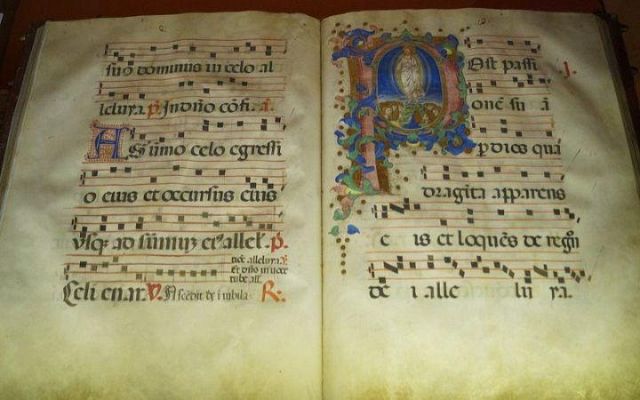 suo dominus in celo al
leluya. p. In dño cōfi. a.
A Summo celo egressi
o eius et occursus eius
usq; ad summū eiꝰ allel. p.
Celi enar. V. Ascedit de i iubila R.
Post passi
onē su ā
p dies qua
dragita apparens
e is et loquēs de regn
de i alle lu ya.